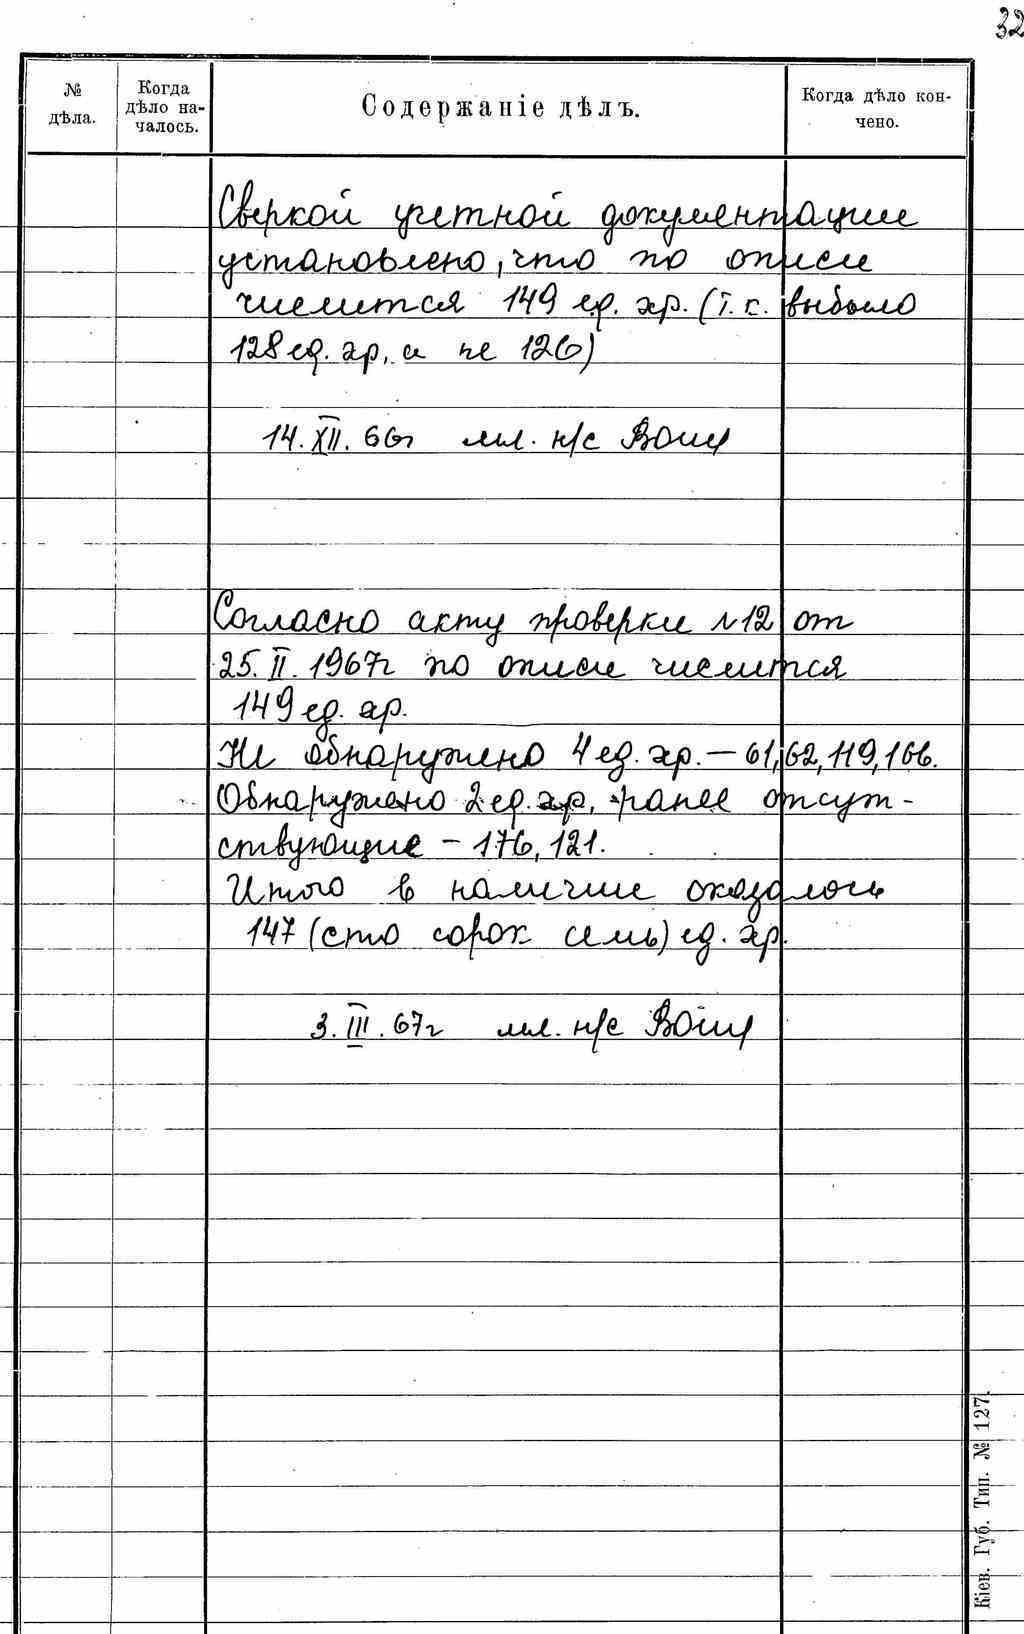 32
№ дѣла.
Когда дѣло на-
чалось.
Содержаніе дѣлъ.
Когда дѣло кон-
чено.
Сверкой учетной документации
установлено, что по описи
числится 149 ед. хр. (т.к. выбыло
128 ед. хр, а не 126)
14.XII.66г мл. н/с
Согласно акту проверки №12 от
25.II.1967г по описи числится
149 ед. хр.
Не обнаружено 4 ед. хр. — 61, 62, 119, 166.
Обнаружено 2 ед. хр, ранее отсут-
ствующие - 176, 121.
Итого в наличие оказалось
147 (сто сорок семь) ед. хр.
3.III.67г мл. н/с
Кіев. Губ. Тип. № 127.